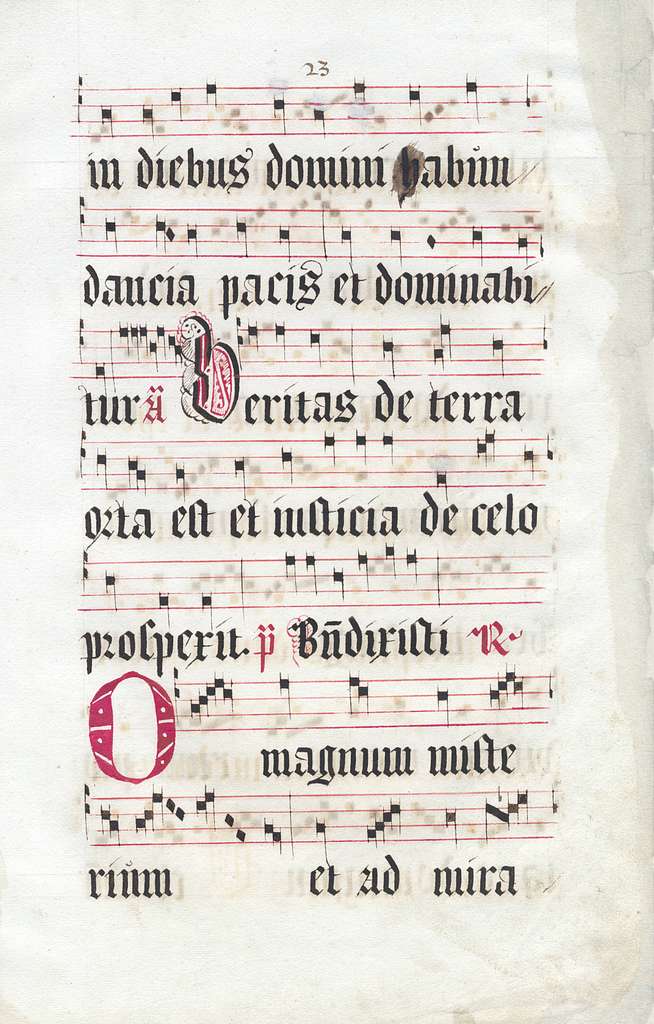 23
in diebus domini habūn
dancia pacis et dominabi
tur ā Veritas de terra
orta est et iusticia de celo
prospexit. p̄ Bn̄dixisti R
O magnum miste
rium et ad mira